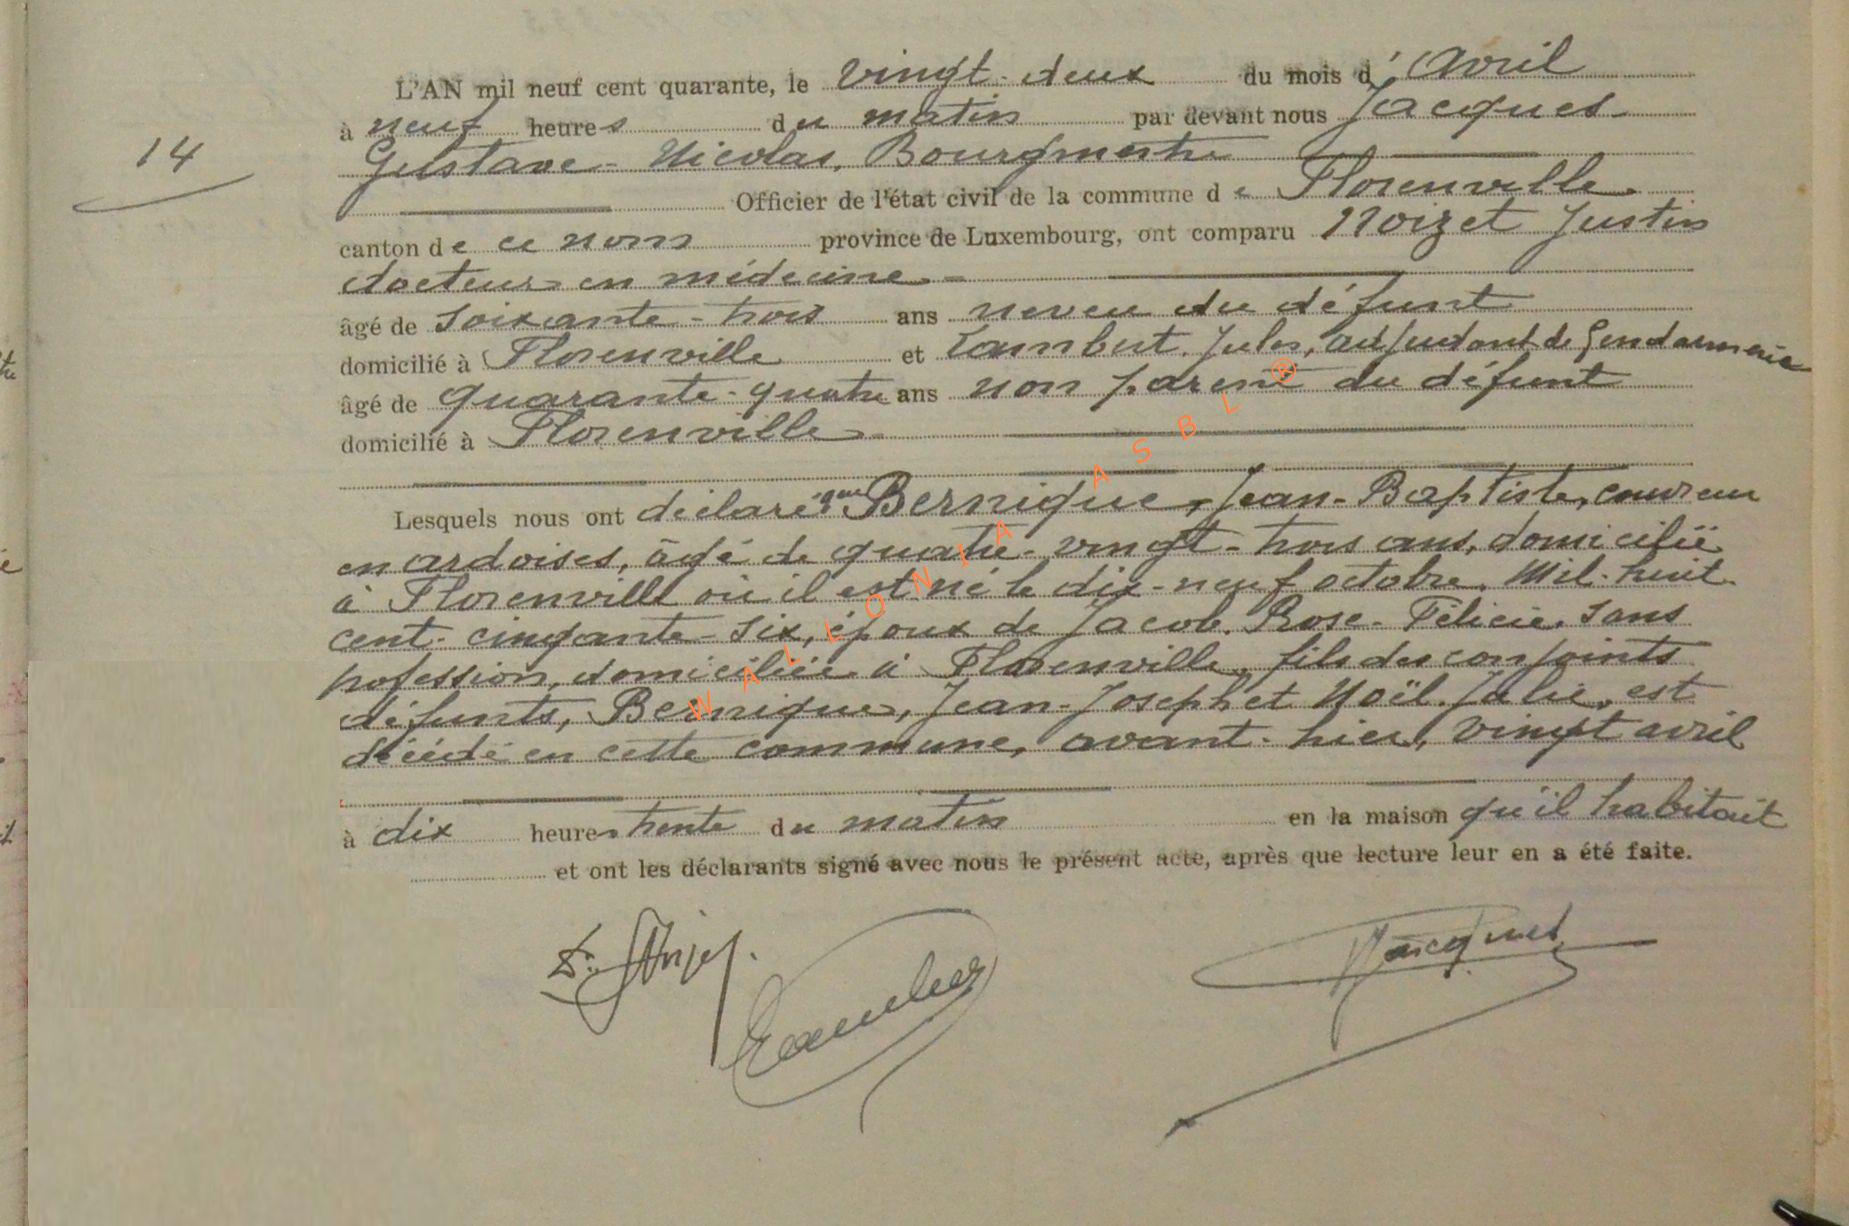 L'AN mil neuf cent quarante, le vingt-deux du mois d'Avril
à neuf heures du matin par devant nous Jacques
14
Gustave-Nicolas, Bourgmestre
Officier de l'état civil de la commune de Florenville
canton de ce nom province de Luxembourg, ont comparu Noizet Justin
docteur en médecine
âgé de soixante-trois ans neveu du défunt
domicilié à Florenville et Lambert Jules, adjudant de Gendarmerie
âgé de quarante-quatre ans non parent du défunt
domicilié à Florenville
Lesquels nous ont déclaré que Bernique, Jean-Baptiste, couvreur
en ardoises, âgé de quatre-vingt-trois ans, domicilié
à Florenville où il est né le dix-neuf octobre, Mil-huit
cent-cinqante-six, époux de Jacob, Rose-Félicie, sans
profession, domiciliée à Florenville, fils des conjoints
défunts, Bernique, Jean-Joseph et Noël Julie, est
décédé en cette commune, avant-hier, vingt avril
à dix heures trente du matin en la maison qu'il habitait
et ont les déclarants signé avec nous le présent acte, après que lecture leur en a été faite.
WALLONIA ASBL ®
Jacques